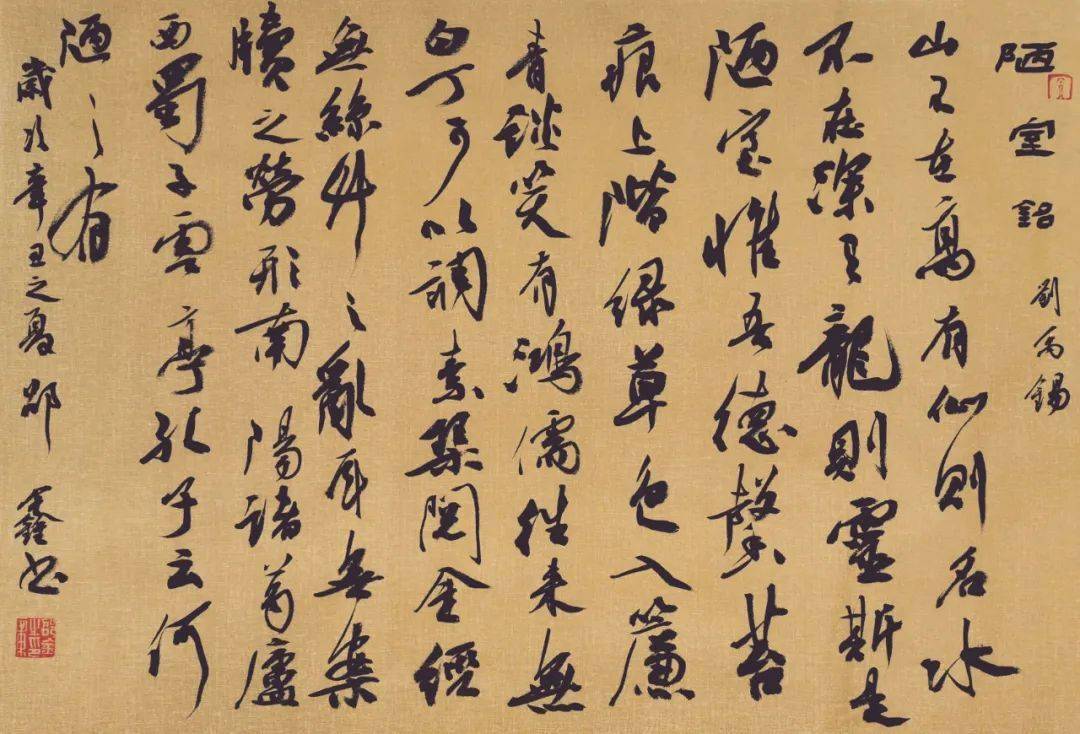 陋室銘
劉禹錫
山不在高有仙則名水
不在深有龍則靈斯是
陋室惟吾德馨苔
痕上階緑草色入簾
青談笑有鴻儒往来無
白丁可以調素琴閲金經
無絲竹之亂耳無案
牘之勞形南陽諸葛廬
西蜀子雲亭孔子云何
陋之有
歲次辛丑之夏邵鑫书